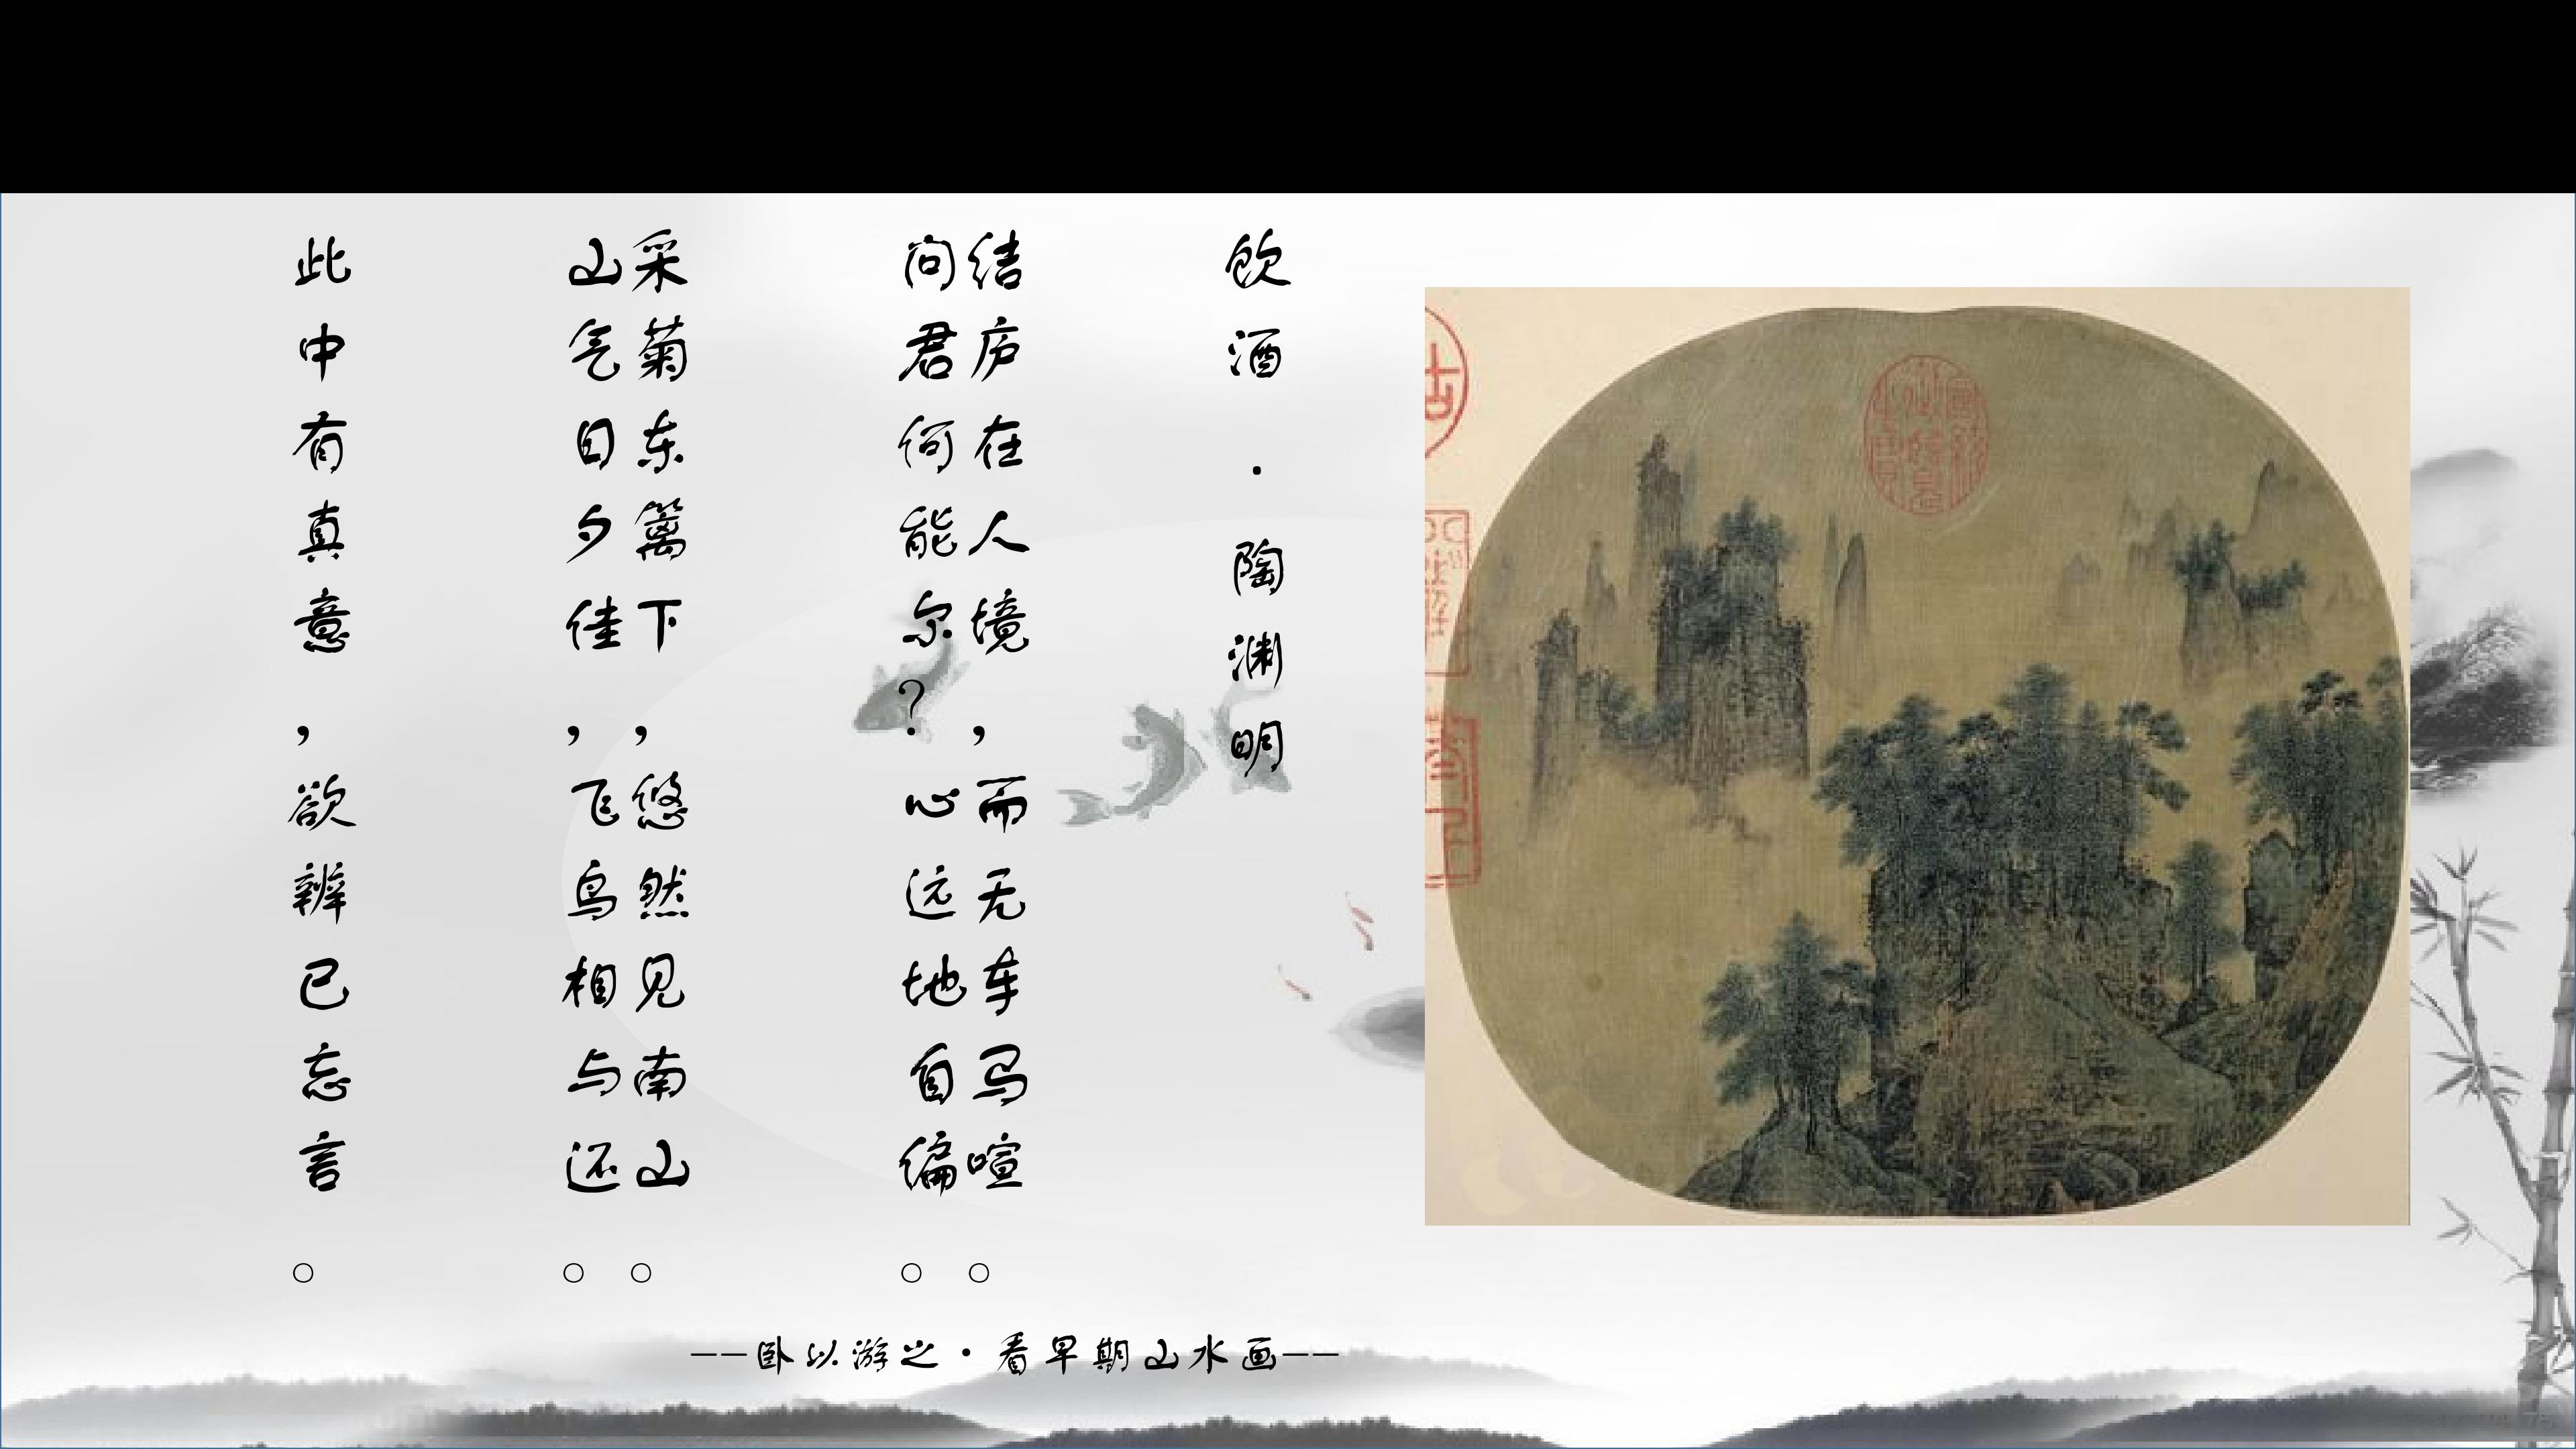 饮酒·陶渊明
结庐在人境，而无车马喧。
问君何能尔？心远地自偏。
采菊东篱下，悠然见南山。
山气日夕佳，飞鸟相与还。
此中有真意，欲辨已忘言。
——卧以游之·看早期山水画——